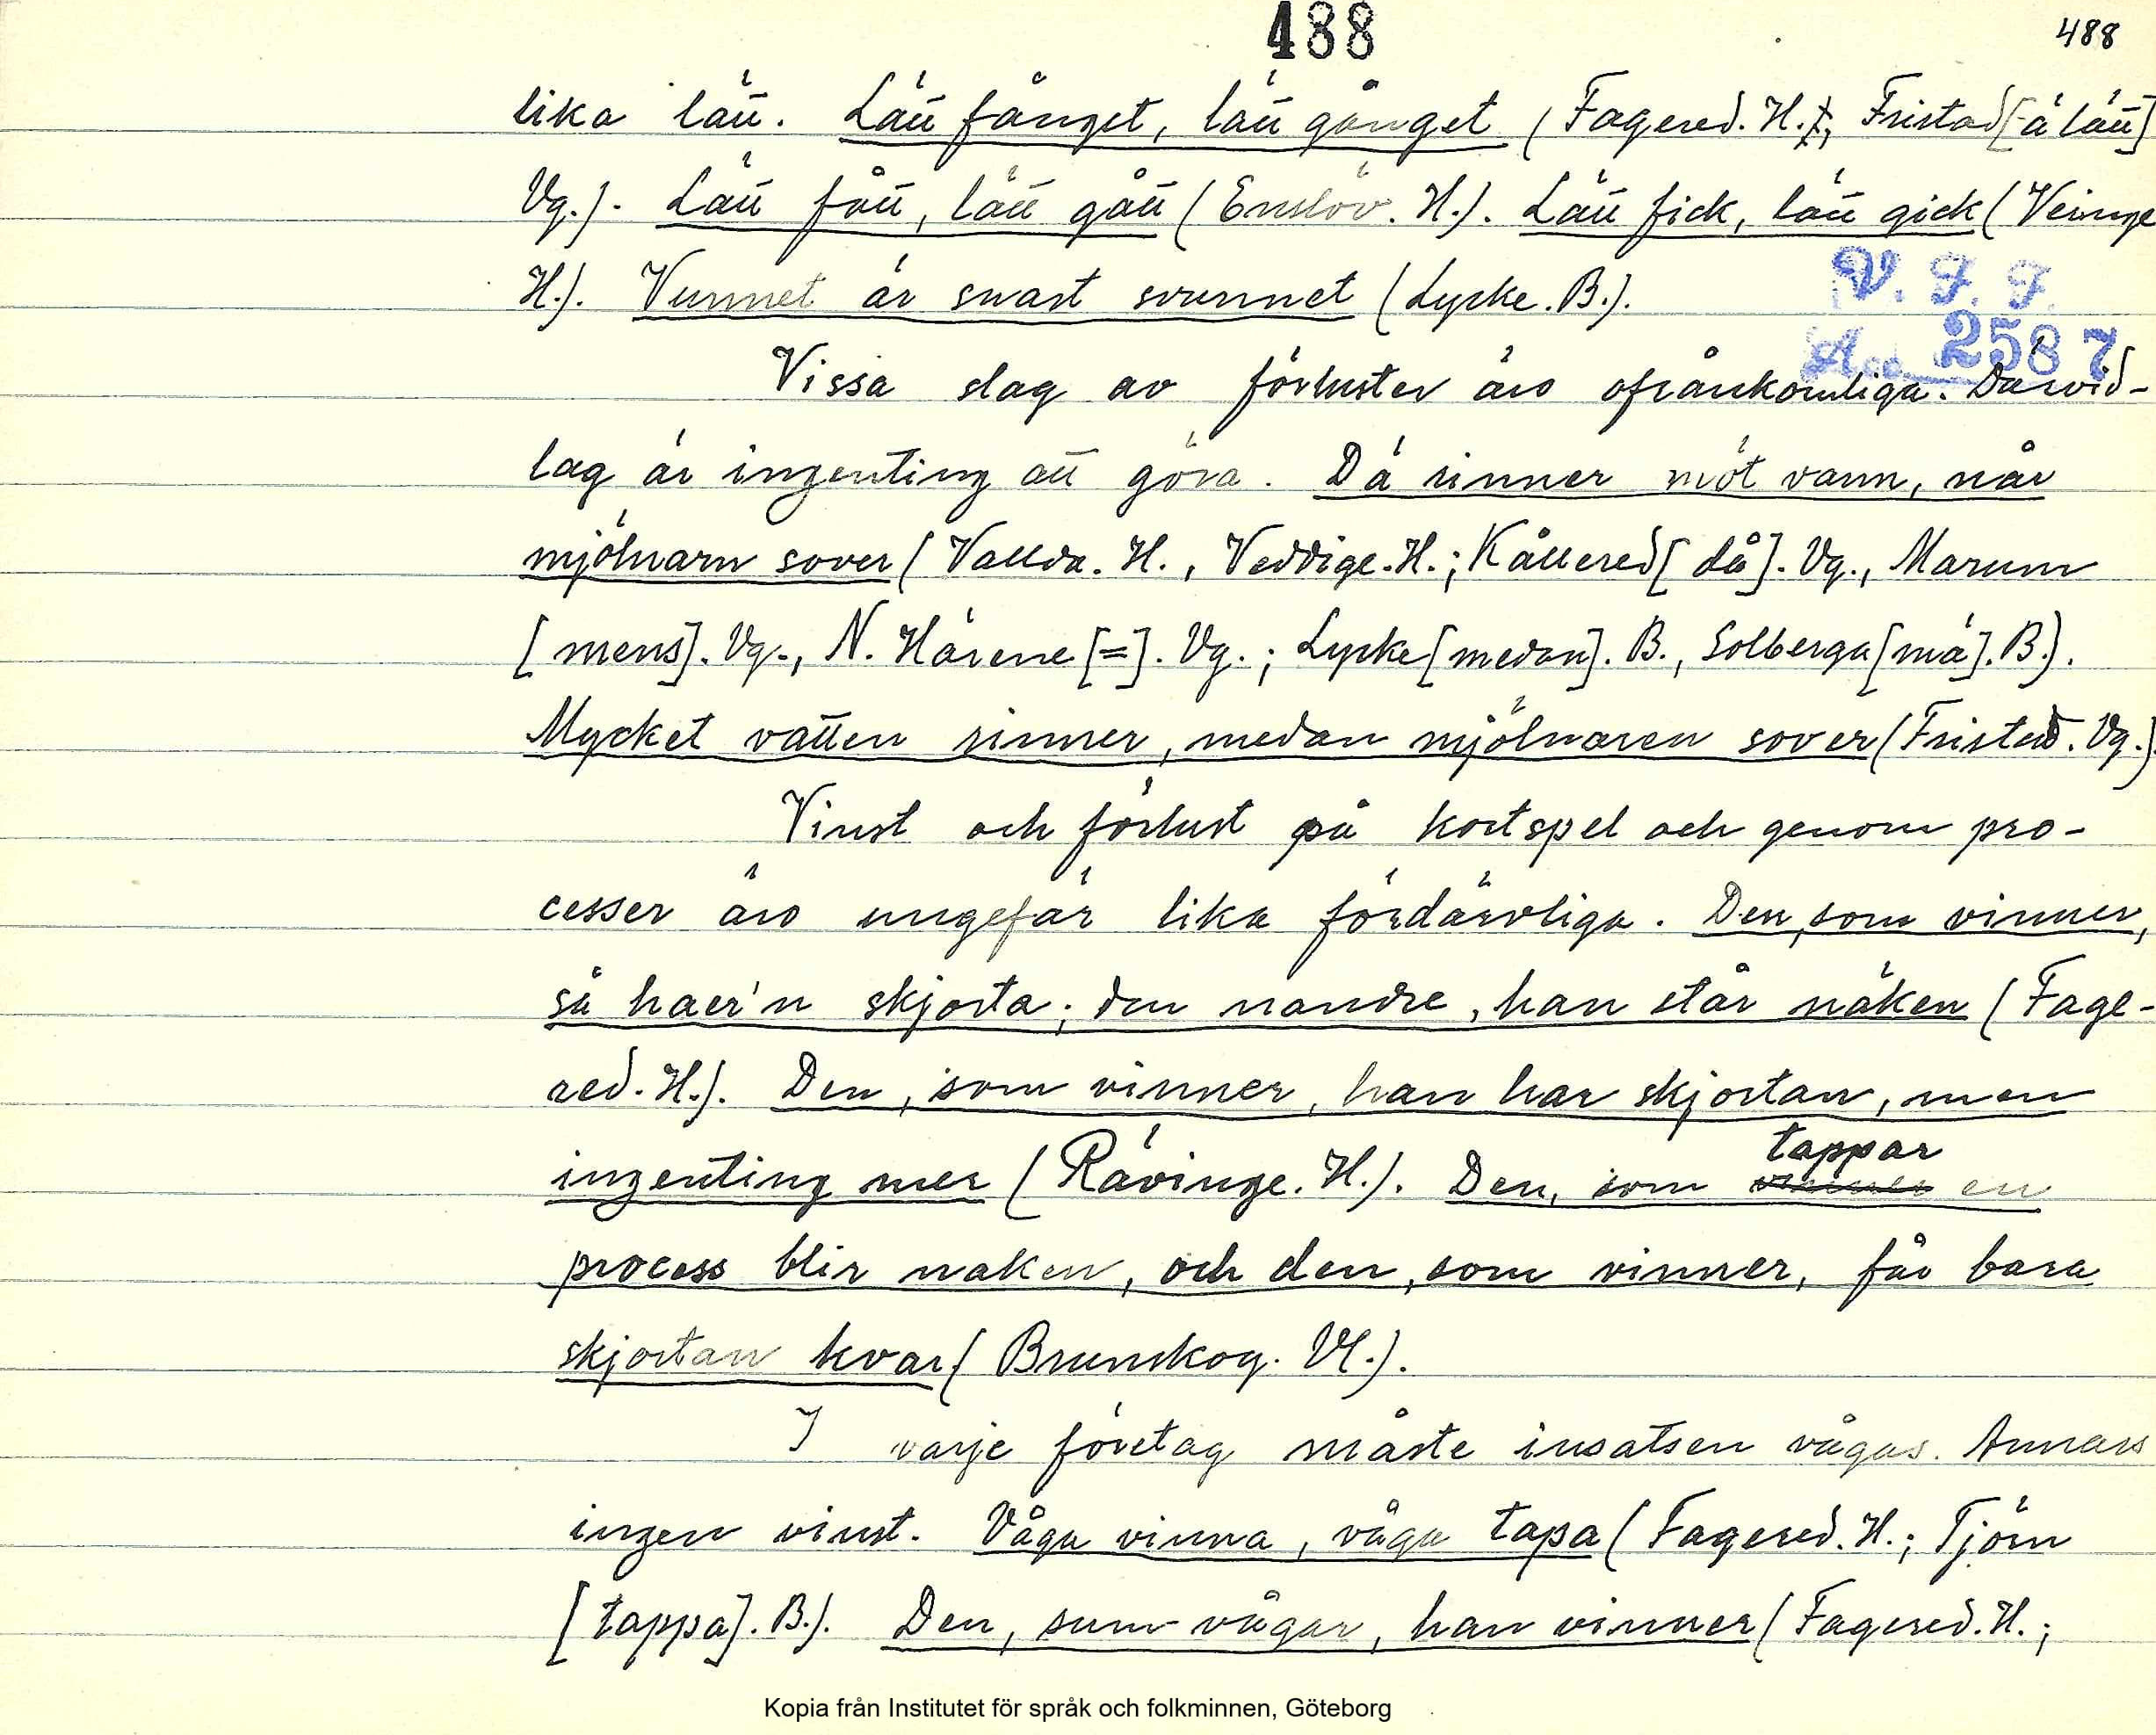 488
488
lika lätt. Lätt fånget, lätt gånget (Fagered. H.; Fristad [-å lätt]
Vg.). Lätt fått, lätt gått (Enslöv. H.). Lätt fick, lätt gick (Veinge
H.). Vunnet är snart svunnet (Lycke. B.).
V. F. F.
Acc. 2587
Vissa slag av förluster äro ofrånkomliga. Därvid-
lag är ingenting att göra. Dä rinner möt vann, når
mjölnarn sover (Vallda. H., Veddige. H.; Kållered [då]. Vg., Marum
[mens]. Vg., N. Härene [=]. Vg.; Lycke [medan]. B., Solberga [mä]. B.).
Mycket vatten rinner, medan mjölnaren sover (Fristad. Vg.).
Vinst och förlust på kortspel och genom pro-
cesser äro ungefär lika fördärvliga. Den, som vinner,
så haer'n skjorta; den nandre, han står näken (Fage-
red. H.). Den, som vinner, han har skjortan, men
ingenting mer (Rävinge. H.). Den, som tappar en
process blir naken, och den, som vinner, får bara
skjortan kvar (Brunskog. Vl.).
I varje företag måste insatsen vågas. Annars
ingen vinst. Våga vinna, våga tapa (Fagered. H.; Tjörn
[tappa]. B.). Den, sum vågar, han vinner (Fagered. H.;
Kopia från Institutet för språk och folkminnen, Göteborg